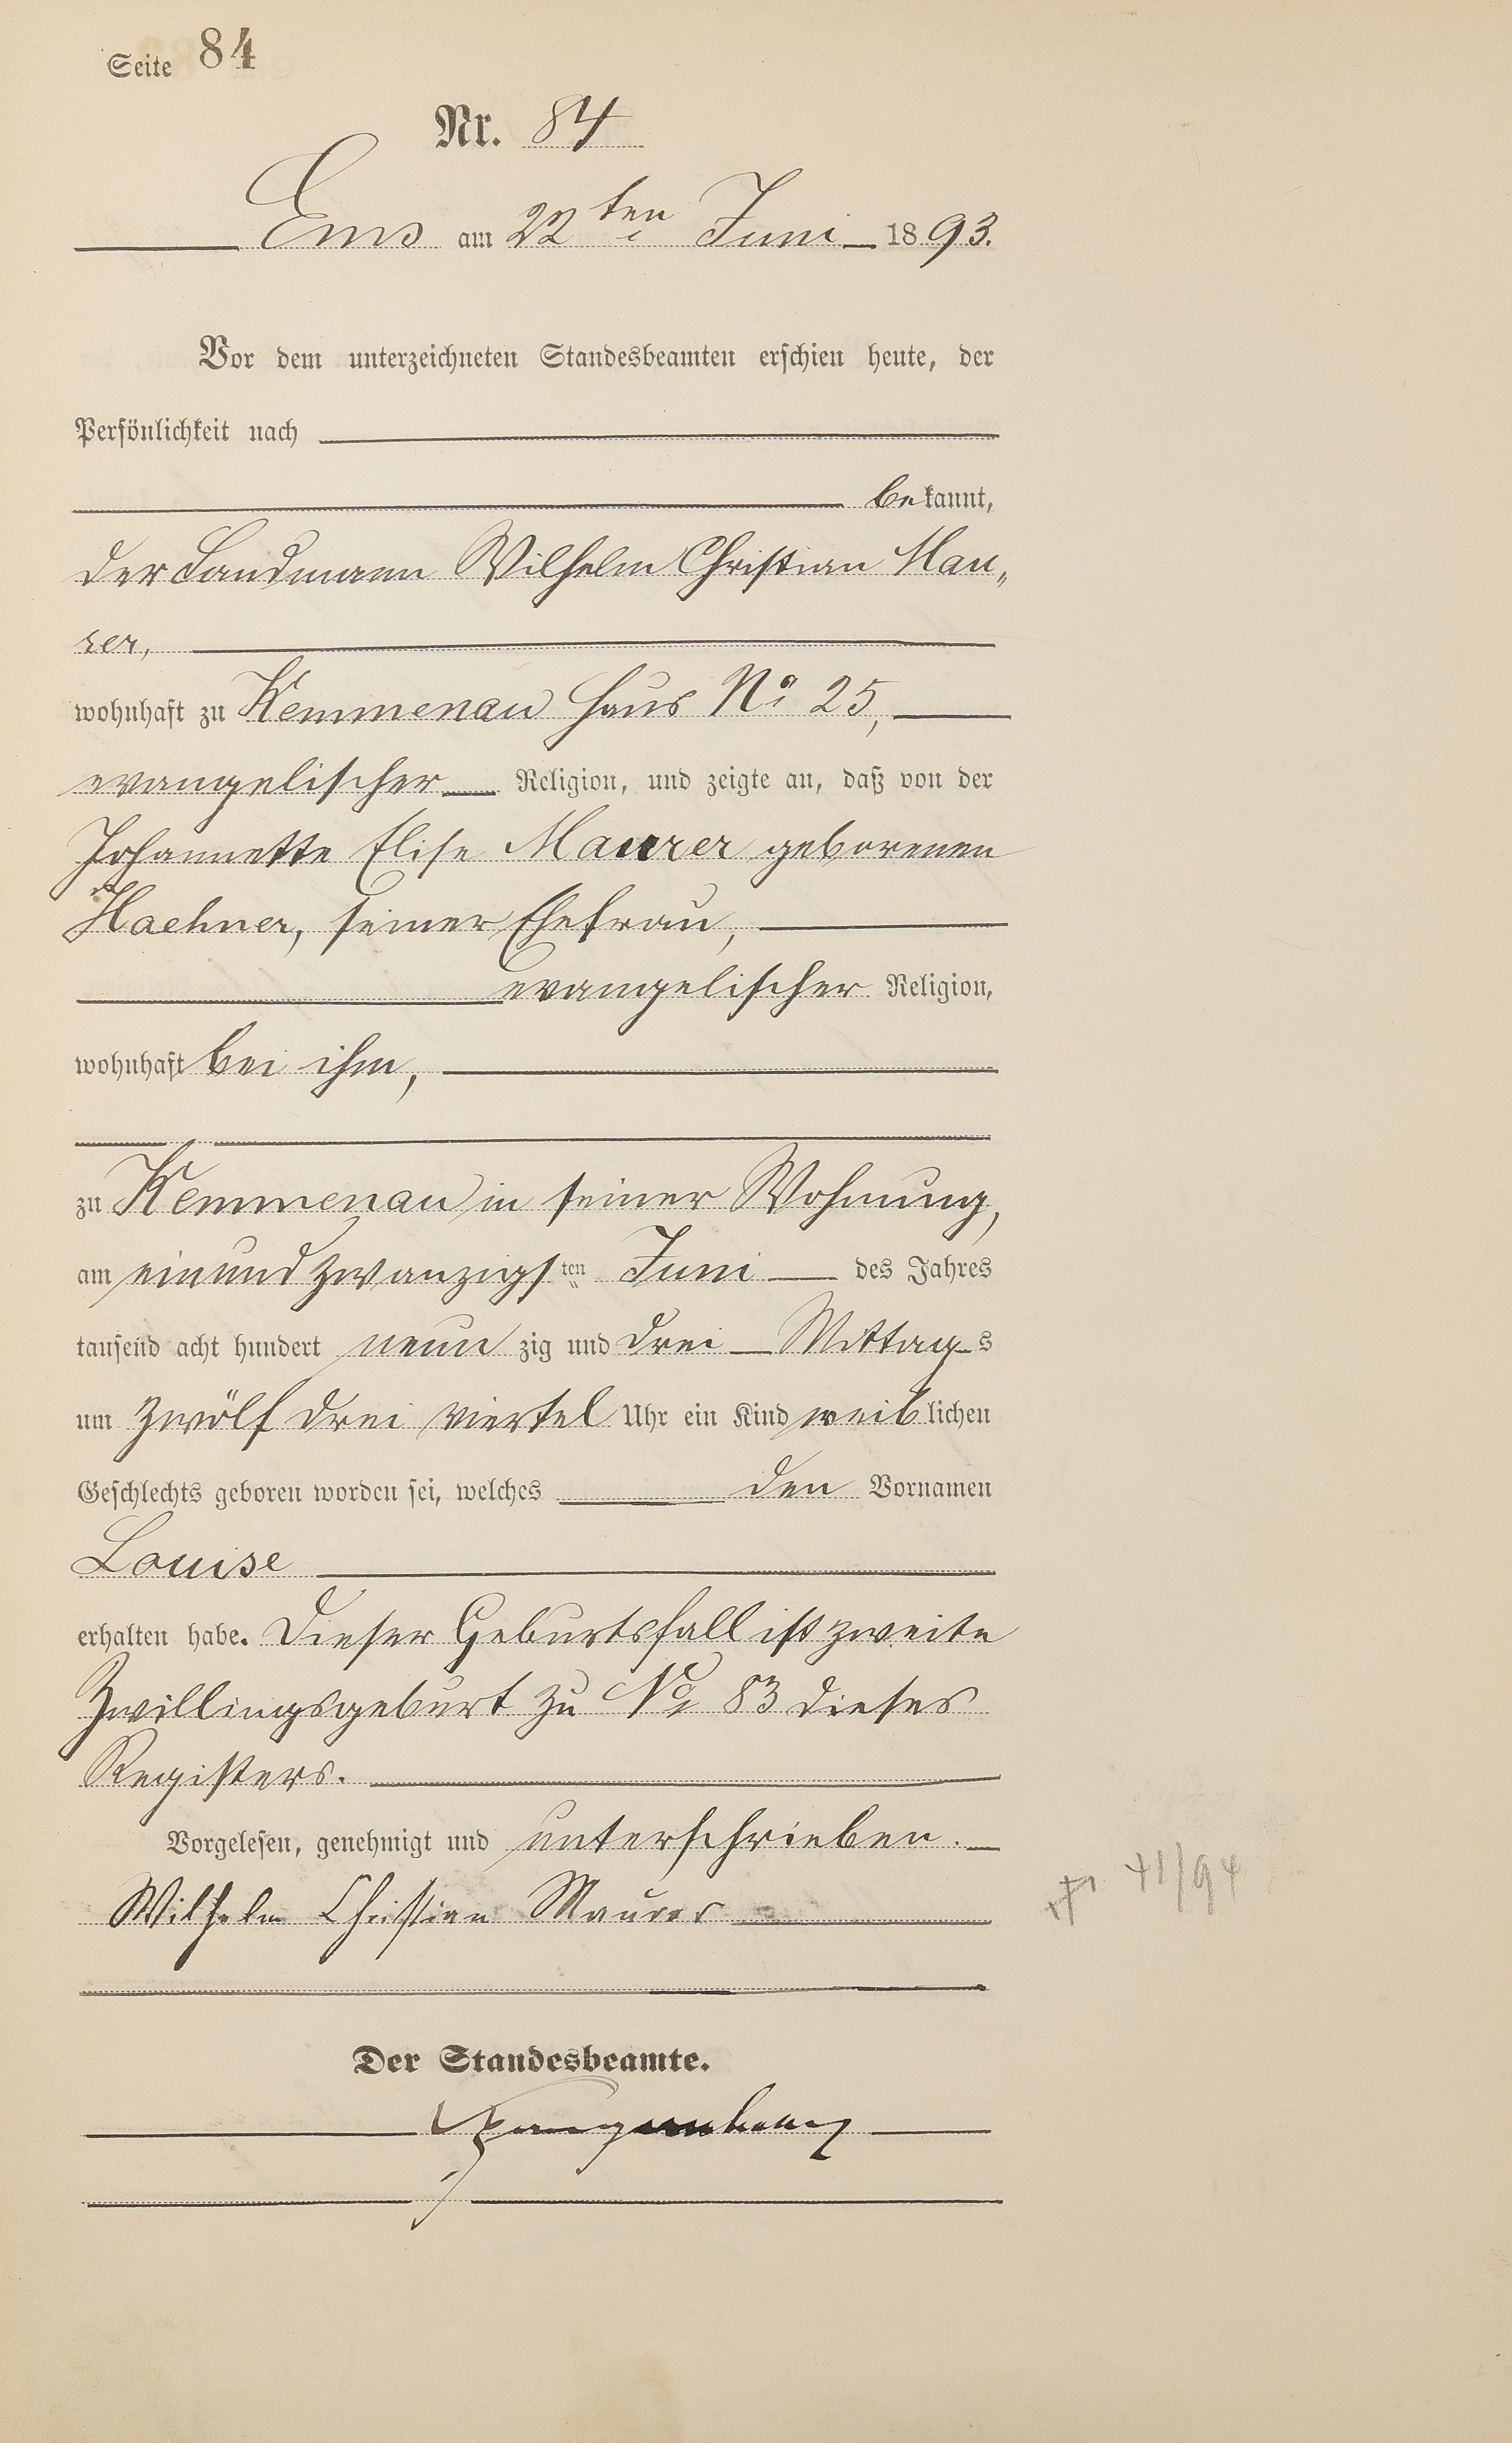 Seite 84
Nr. 84
Ems am 22ten Juni 1893.
Vor dem unterzeichneten Standesbeamten erschien heute, der
Persönlichkeit nach
bekannt,
der Landmann Wilhelm Christian Mau„
rer,
wohnhaft zu Kemmenau Haus No 25,
evangelischer Religion, und zeigte an, daß von der
Johannette Elise Maurer geborenen
Haehner, seiner Ehefrau,
evangelischer Religion,
wohnhaft bei ihm,
zu Kemmenau in seiner Wohnung,
am ein und zwanzigsten Juni des Jahres
tausend acht hundert neun zig und drei Mittags
um zwölf drei viertel Uhr ein Kind weiblichen
Geschlechts geboren worden sei, welches den Vornamen
Louise
erhalten habe. Dieser Geburtsfall ist zweite
Zwillingsgeburt zu No 83 dieses
Registers.
Vorgelesen, genehmigt und unterschrieben.
Wilhelm Christian Maurer
41/94
Der Standesbeamte.